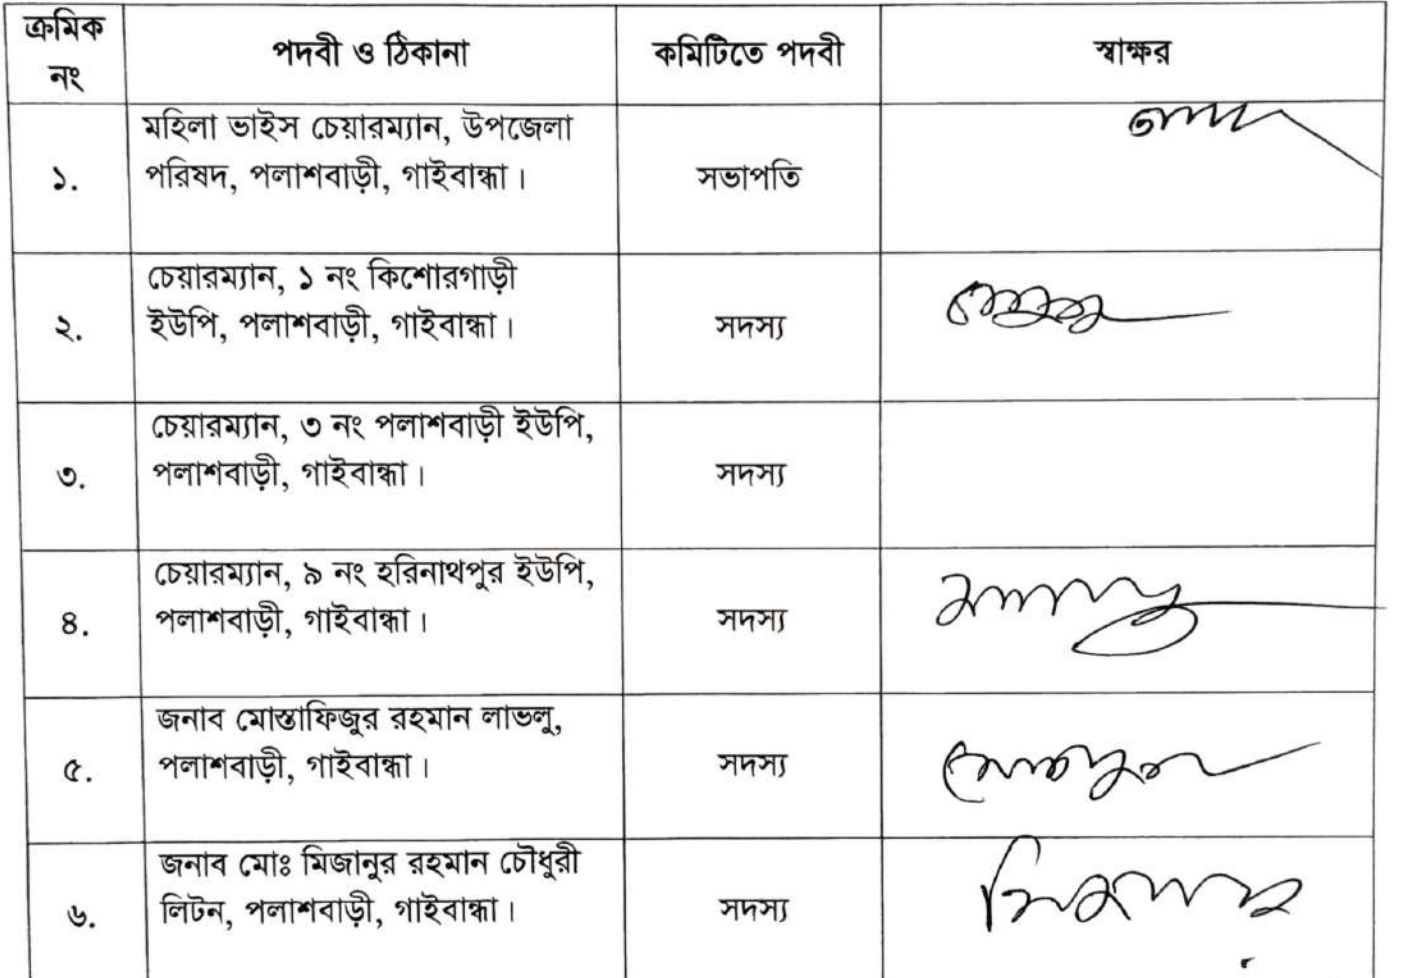 ক্রমিক
নং
পদবী ও ঠিকানা
কমিটিতে পদবী
স্বাক্ষর
১.
মহিলা ভাইস চেয়ারম্যান, উপজেলা
পরিষদ, পলাশবাড়ী, গাইবান্ধা।
সভাপতি
২.
চেয়ারম্যান, ১ নং কিশোরগাড়ী
ইউপি, পলাশবাড়ী, গাইবান্ধা।
সদস্য
৩.
চেয়ারম্যান, ৩ নং পলাশবাড়ী ইউপি,
পলাশবাড়ী, গাইবান্ধা।
সদস্য
৪.
চেয়ারম্যান, ৯ নং হরিনাথপুর ইউপি,
পলাশবাড়ী, গাইবান্ধা।
সদস্য
৫.
জনাব মোস্তাফিজুর রহমান লাভলু,
পলাশবাড়ী, গাইবান্ধা।
সদস্য
৬.
জনাব মোঃ মিজানুর রহমান চৌধুরী
লিটন, পলাশবাড়ী, গাইবান্ধা।
সদস্য